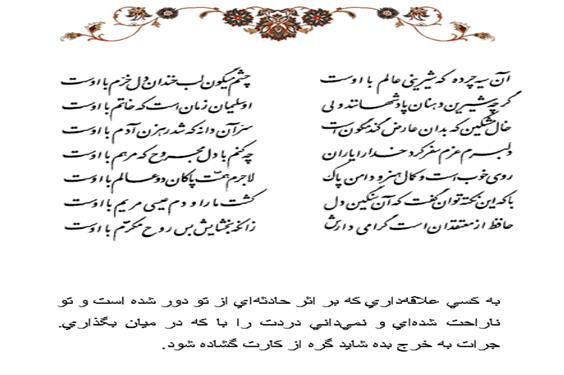 آن سیه چرده که شیرینی عالم با اوست چشم میگون لب خندان دل خرم با اوست
گرچه شیرین دهنان پادشهانند ولی او سلیمان زمان است که خاتم با اوست
خال مشکین که بدان عارض گندمگون است سر آن دانه که شد رهزن آدم با اوست
دلبرم عزم سفر کرد خدا را یاران چه کنم با دل مجروح که مرهم با اوست
روی خوب است و کمال هنر و دامن پاک لاجرم همت پاکان دو عالم با اوست
با که این نکته توان گفت که آن سنگین دل کشت ما را و دم عیسی مریم با اوست
حافظ از معتقدان است گرامی دارش زانکه بخشایش بس روح مکرم با اوست
به کسي علاقه‌داري که بر اثر حادثه‌اي از تو دور شده است و تو
ناراحت شده‌اي و نمي‌داني دردت را با که در ميان بگذاري.
جرات به خرج بده شايد گره از کارت گشاده شود.